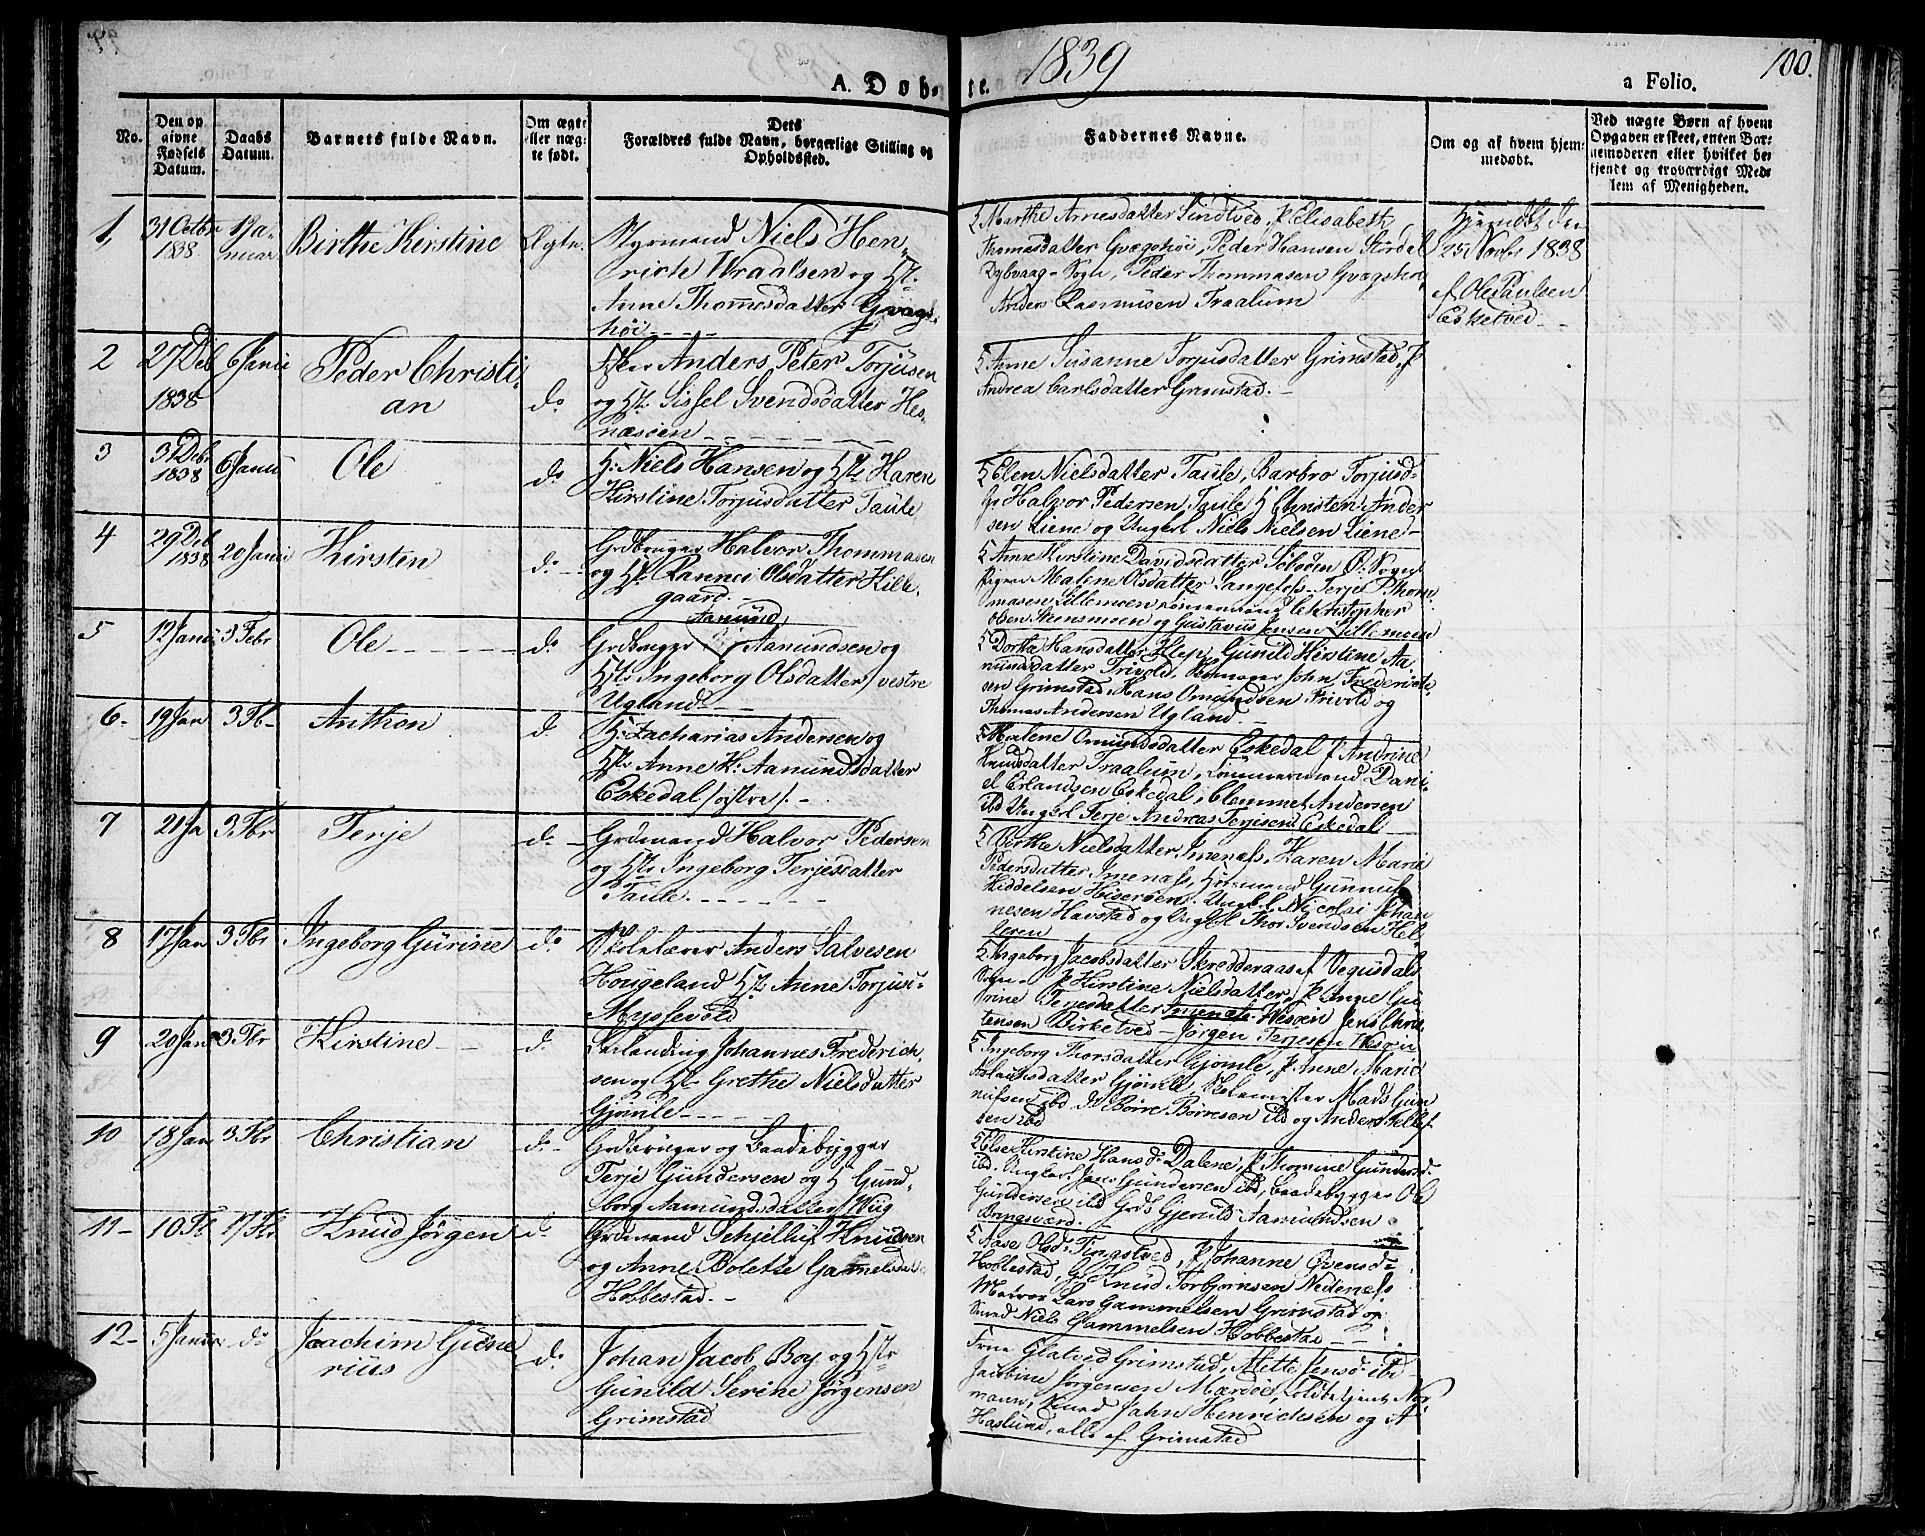 1839
100.
A. Döbte.
a Folio.
No.
Den op
givne
Fødsels
Datum.
Daabs
Datum.
Barnets fulde Navn.
Om ægte
eller næg-
te født.
Dets
Forældres fulde Navn, borgerlige Stilling og
Opholdssted.
Faddernes Navne.
Om og af hvem hjem-
medøbt.
Ved uægte Børn af hvem
Opgaven er skeet, enten Bar-
nemoderen eller hvilket be-
kjendt og troværdigt Med-
lem af Menigheden.
1,
31 Octbr
1838
1 Ja-
nuar
Birthe Kirstine
Ægte
Styrmand Niels Hen-
rich Wraalsen og
Anne Thomesdatter Gvags-
høi
Marthe Arnesdatter Sindtved, P. Elisabeth
Thomasdatter Gvagshøi, Peder Hansen Stördal
Dybvaag-Sogn, Peder Thommasen Gvagshøi
Anders Rasmusen Traalum
Hjemdbt den
25 Novbr 1838
af Ole Paulsen
Esketved
2
27 Deb
1838
6 Janu
Peder Christi-
an
do
Anders Peter Torjusen
og Sissel Svendsdatter Hes-
næsöen
Anne Susanne Torjusdatter Grimstad, P
Andrea Carlsdatter Grimstad.
3
31 Debr
1838
6 Janu
Ole
do
Niels Hansen og Karen
Kirstine Torjusdatter Taule
Elen Nielsdatter Taule, Barbro Torjusd-
G. Halvor Pedersen Taule, Christen Ander
sen Liene og Ungkl Niels Nielsen Liene
4
29 Deb
1838
20 Janu
Kirsten
do
Grdbruger Halvor Thommasen
og Rannei Olsdatter Kille-
gaard.
Anne Kirstine Davidsdatter
Pigen Malene Olsdatter Langefoss, Terje P. Thom-
masen Lillemoen, Christopher
Olsen Stensmoen og Gustavus Jensen Lillemoen
5
12 Janu
3 Febr
Ole
do
Aamund
Grdbruger Aamundsen og
Ingeborg Olsdatter / vestre
Ugland
Dorthe Hansdatter, Gunild Kirstine Aa-
mundsdatter Trivold, John Frederick-
sen Grimstad, Hans Omundsen Trivold og
Thomas Andersen Ugland
6
19 Jan
3 Fb
Anthon
do
Zacharias Andersen og
Anne K: Aamundsdatter
Eskedal / østre /.
Malene Omundsdatter Eskedal P. Andrine
Knudsdatter Traalum, Dani-
el Erlandsen Eskedal, Clemmet Andersen
ibd Ungkl Terje Andreas Terjesen Eskedal
7
21 Ja
3 Fbr
Terje
do
Grdmand Halvor Pedersen
og Ingeborg Terjesdatter
Taule.
Birthe Nielsdatter Imenæss, Karen Marie
Pedersdatter Imenæss, Gunnuf
Nicolai Johan-
nesen Havstad og Ungkl Thor Svendsen Hel-
leren
8
17 Jan
3 Fbr
Ingeborg Gurine
do
Skolelærer Anders Salvesen
Hougeland Anne Torjus-
Myssevold
Ingeborg Jacobsdatter Skredderaas af Vegusdals
Sogn, P Kirstine Nielsdatter, P. Anne Gu-
rine Terjesdatter
tensen Birketved - Jörgen Terjesen
9
20 Jan
3 Fbr
Kirstine
do
Johannes Frederich-
sen og Grethe Nielsdatter
Gjömle
Ingeborg Thorsdatter Gjömle, P. Anne Marie
Aslaksdatter Gjömle, Skolemester Mads Gun
nufsen ibd Börre Börresen ibd og Anders
sen ibd
10
18 Jan
3 Fbr
Christian
do
Grdbruger og Baadebygger
Terje Gundersen og Gund-
borg Aamundsdatter Wiig
Else Kirstine Hansd: Dalene, P. Thomine Gundersd-
ibd, Ungkarl Jens Gundersen ibd, Baadebygger Ole
Gundersen ibd Grd Gjeruld Aamundsen
Bringsværd.
11
10 Fb
17 Fbr
Knud Jörgen
do
Grdmand Schjelluf Knudsen
og Anne Bolette Gamelsdat-
Hobbestad.
Aase Olsd: Tingstved, P. Johanne Evensd-
Hobbestad, G. Knud Torbjornsen Nedenæs
Matros Lars Gammelsen Grimstad og
Smed Niels Gammelsen Hobbestad
12
5 Janu
do
Joachim Gune-
rius
do
Johan Jacob Boy og
Gunild Serine Jörgensen
Grimstad
Frue Glatved Grimstad, Mette Jensd- ibd
Jacobine Jörgensen Mærdöe, Toldbetjent Nor-
mann, Smed Jahn Henrichsen og A
Haslund, alle af Grimstad